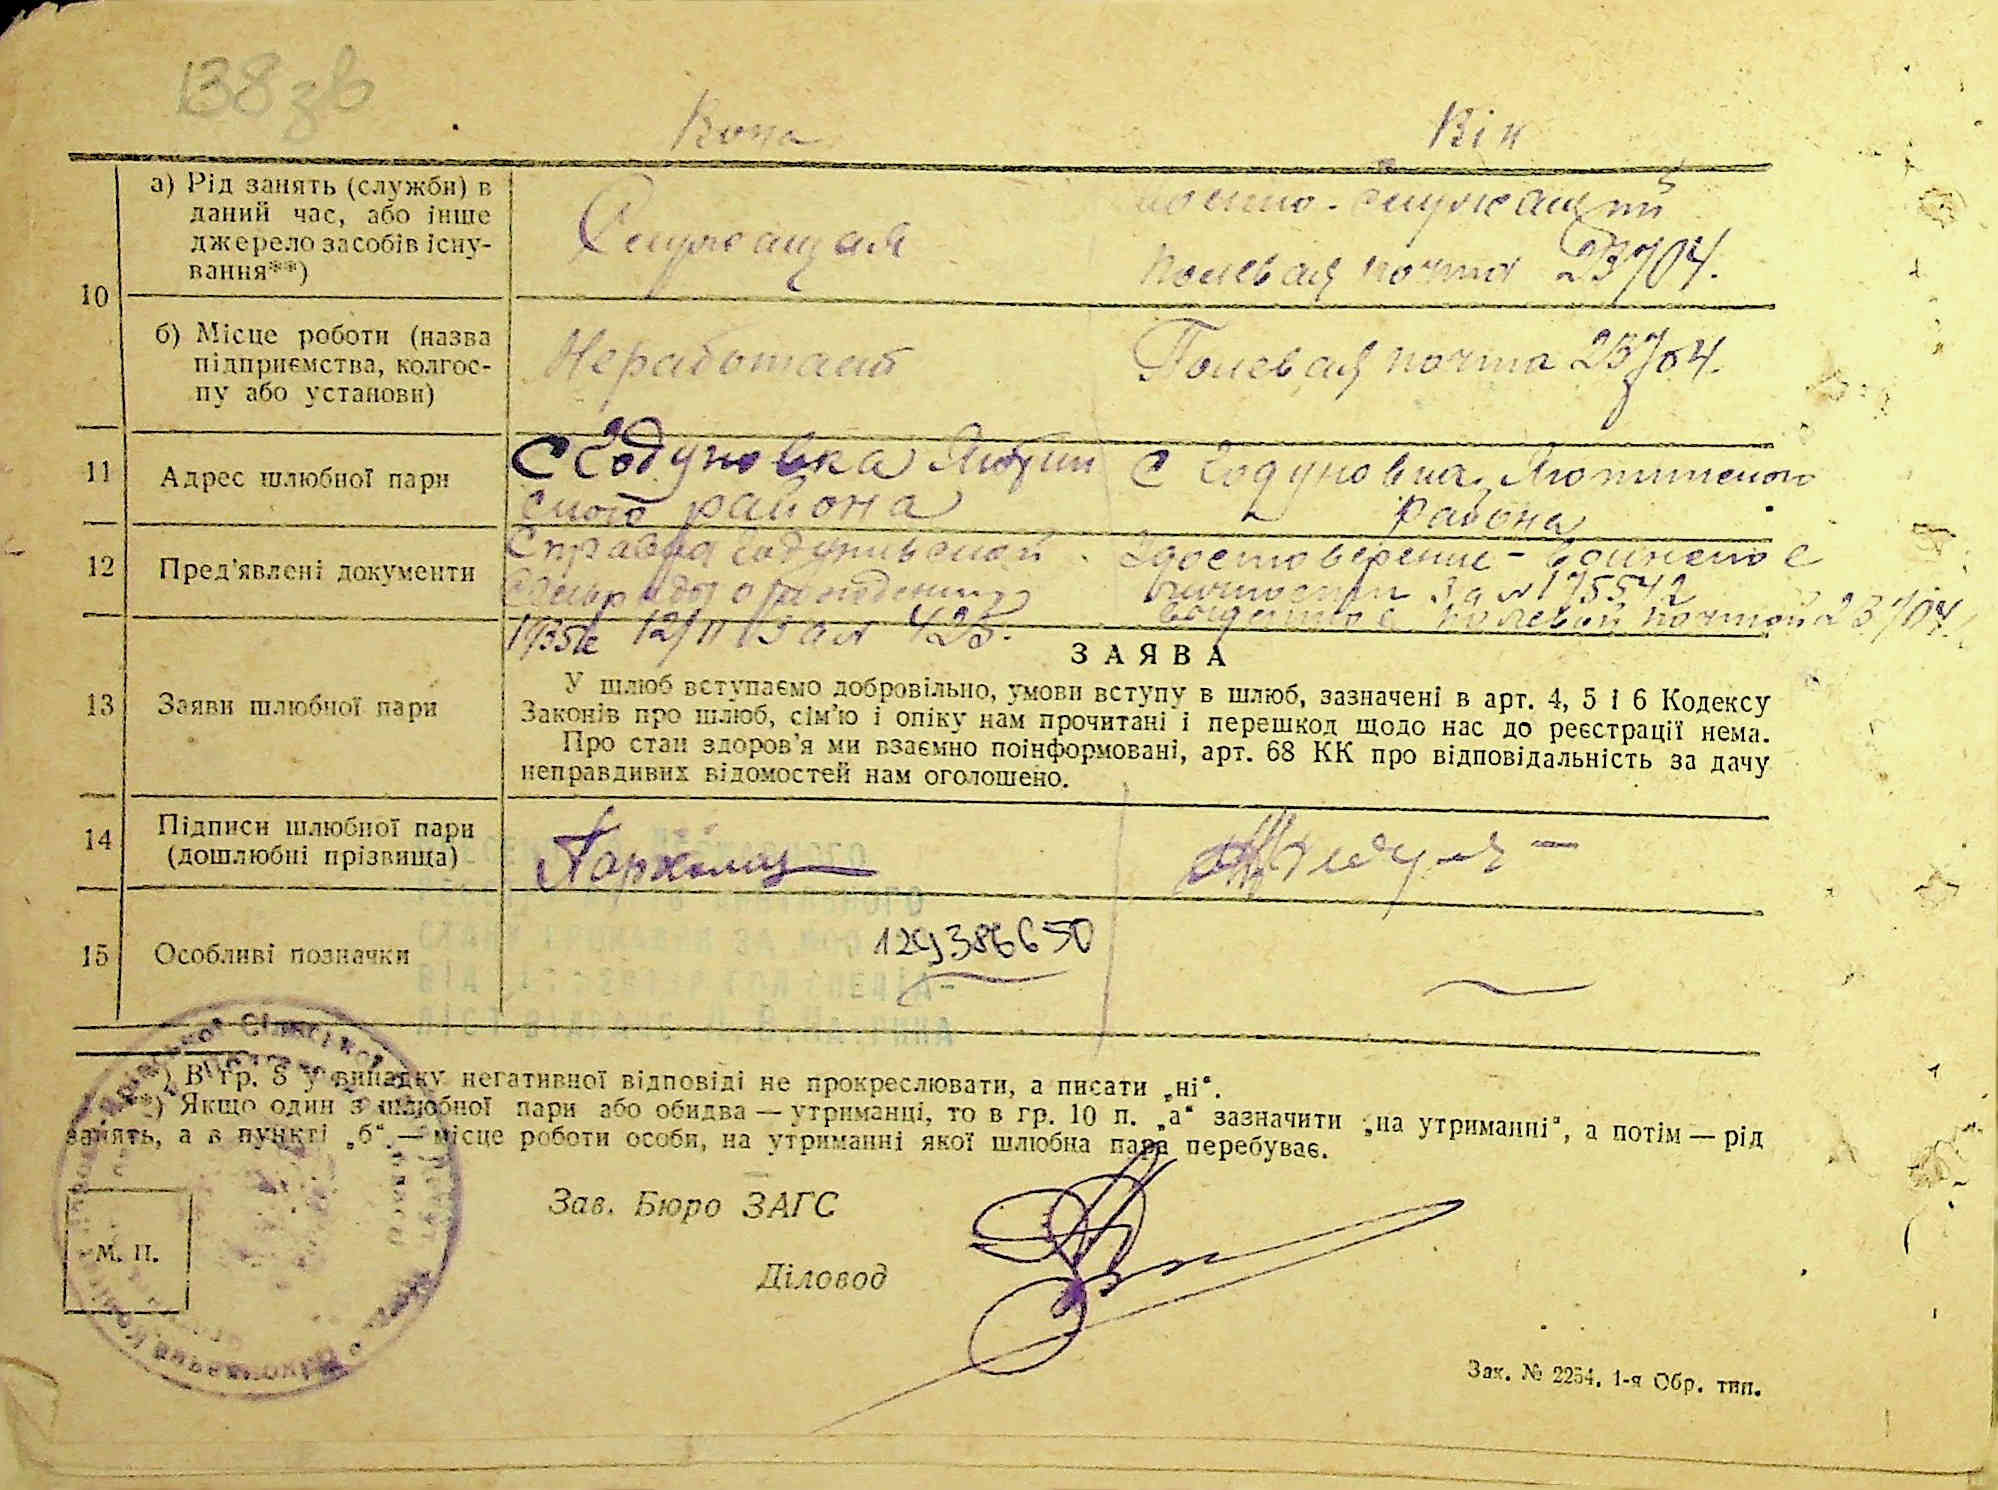 138 зв
Вона Він
10
а) Рід занять (служби) в
даний час, або інше
джерело засобів існу-
вання**)
Служащая
военно-служащий
полевая почта 23704.
б) Місце роботи (назва
підприємства, колгос-
пу або установи)
Неработает
Полевая почта 23704.
11
Адрес шлюбної пари
с Годуновка
ского района
с Годуновка,
района
12
Пред'явлені документи
Справка
о рождении
425.
Удостоверение-
личности за № 175542
полевой почтой 23704.
13
Заяви шлюбної пари
ЗАЯВА
У шлюб вступаємо добровільно, умови вступу в шлюб, зазначені в арт. 4, 5 і 6 Кодексу
Законів про шлюб, сім'ю і опіку нам прочитані і перешкод щодо нас до реєстрації нема.
Про стан здоров'я ми взаємно поінформовані, арт. 68 КК про відповідальність за дачу
неправдивих відомостей нам оголошено.
14
Підписи шлюбної пари
(дошлюбні прізвища)
15
Особливі позначки
129386650
*) В гр. 8 у випадку негативної відповіді не прокреслювати, а писати „ні“.
**) Якщо один з шлюбної пари або обидва — утриманці, то в гр. 10 п. „а“ зазначити „на утриманні“, а потім — рід
занять, а в пункті „б“ — місце роботи особи, на утриманні якої шлюбна пара перебуває.
Зав. Бюро ЗАГС
М. П.
Діловод
Зак. № 2254. 1-я Обр. тип.